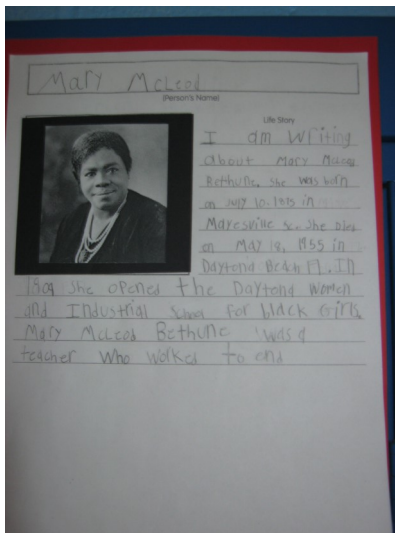 Mary McLeod
(Person's Name)
Life Story
I am Writing
about Mary Mcleod
Bethune. She was born
on July 10, 1875 in
Mayesville sc. She Died
on MAY 18, 1955 in
Daytona Beach Fl. In
1904 She opened the Daytona Women
and Industrial School for black Girls.
Mary McLeod Bethune was a
teacher Who Worked to end